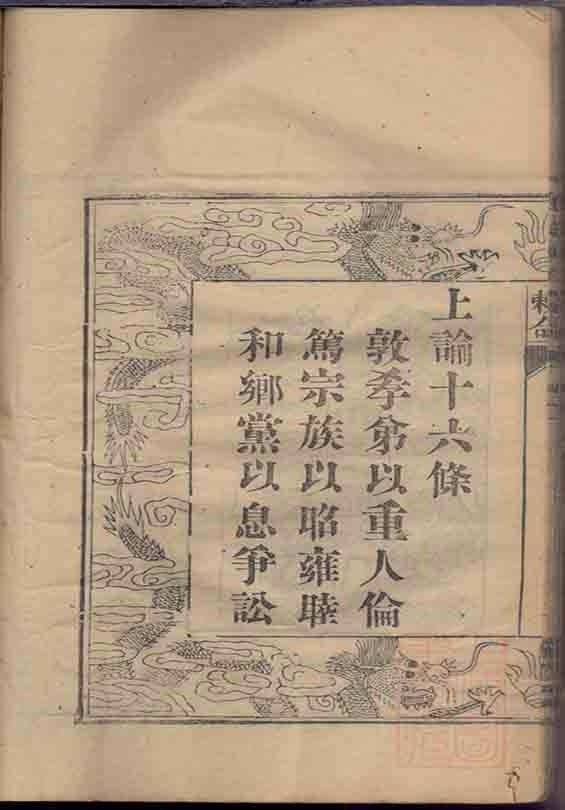 上諭十六條
敦孝弟以重人倫
篤宗族以昭雍睦
和鄉黨以息爭訟